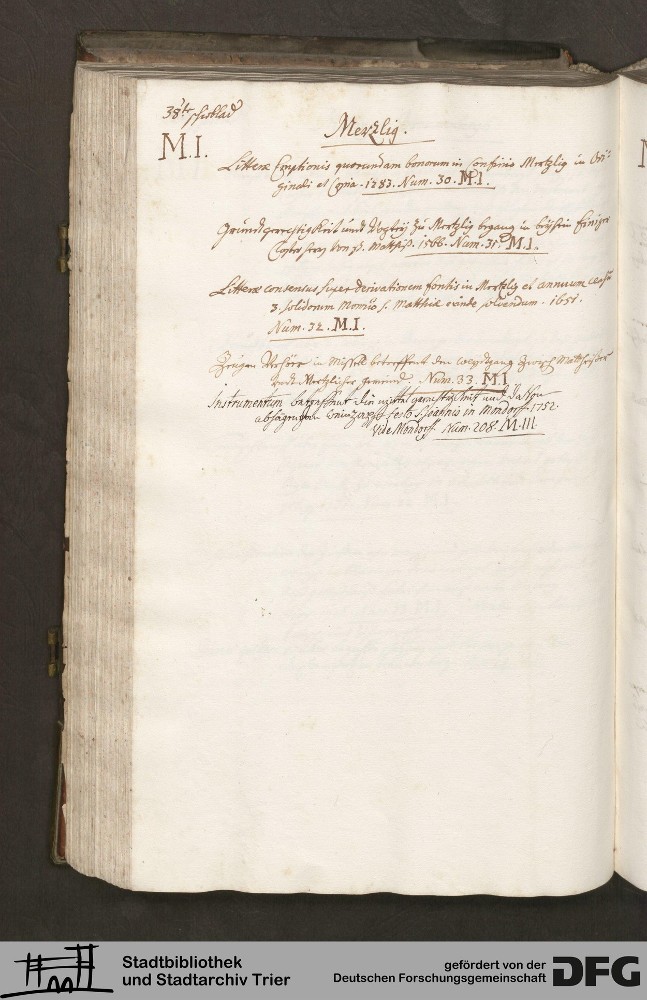 38te
Mertzlig.
M.I.
Litterae Emptionis quorundam bonorum in Confinio Mertzlig in Ori-
ginali et Copia. 1283. Num. 30. M.I.
Grundgerechtigkeit und Vogtey zu Mertzlig begang in beysein Einiger
Closter von St. Matthiß. 1566. Num. 31. M.I.
Litterae consensus super derivationem fontis in Mertzlig et annuum censum
3. solidorum Monrio S. Matthiae exinde solvendum. 1651.
Num. 32. M.I.
Zeugen Verhör in Missell betreffent den weydtgang
undt Mertzlicher gemeind. Num. 33. M.I.
Instrumentum betreffent den und
weinzapff festo S. Joannis in Mondorff. 1752.
Vide Mondorff. Num. 208. M.III.
Stadtbibliothek
und Stadtarchiv Trier
gefördert von der
Deutschen Forschungsgemeinschaft
DFG